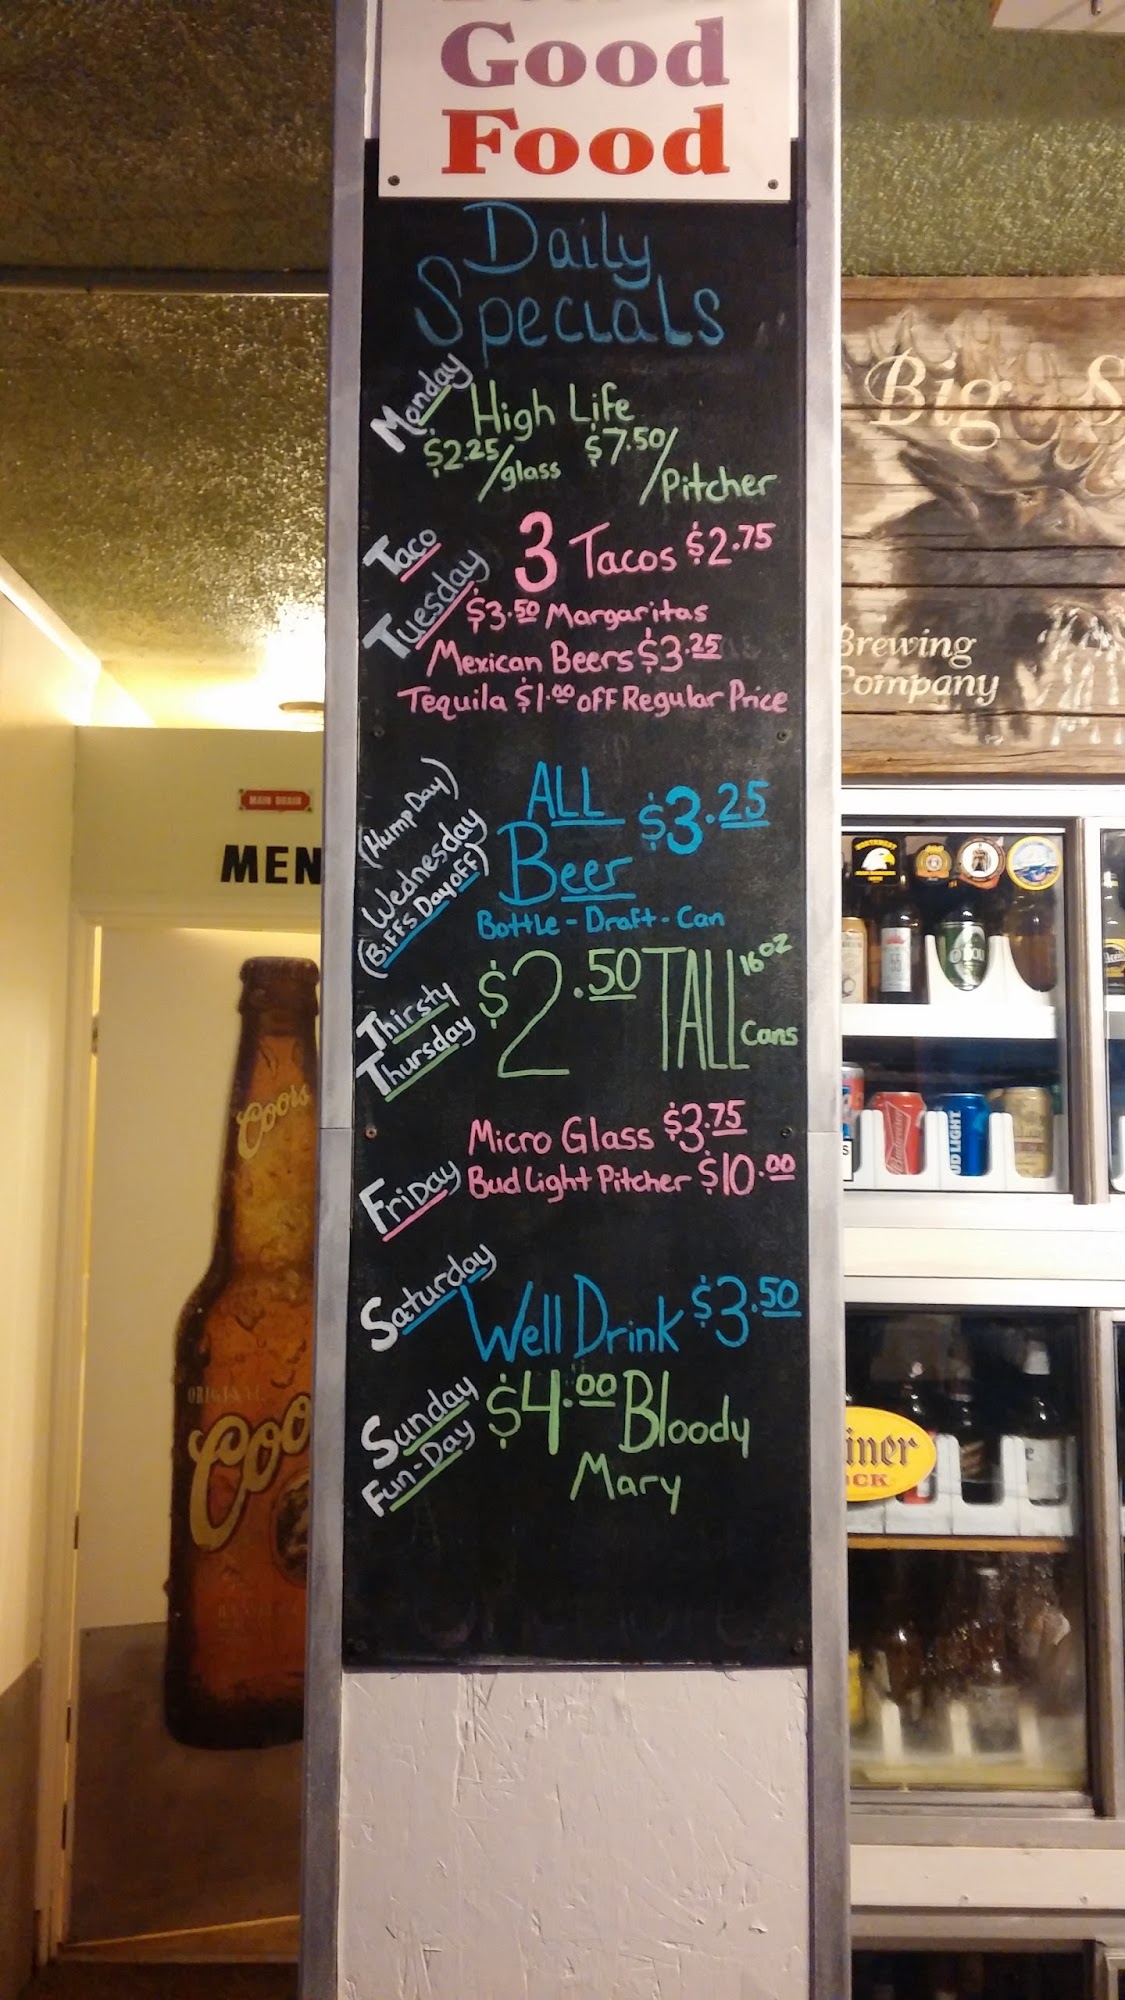 Good
Food
Daily
Specials
Monday
High Life
$2.25/glass $7.50/Pitcher
Taco
Tuesday
3 Tacos $2.75
$3.50 Margaritas
Mexican Beers $3.25
Tequila $1.00 off Regular Price
(Hump Day)
Wednesday
(Biffs Day off)
ALL
Beer $3.25
Bottle - Draft - Can
Thirsty
Thursday
$2.50 TALL 16oz
Cans
Friday
Micro Glass $3.75
Bud Light Pitcher $10.00
Saturday
Well Drink $3.50
Sunday
Fun-Day
$4.00 Bloody
Mary
MAIN DRAIN
MEN
Coors
ORIGINAL
Coo
Big S
Brewing
Company
Budweiser
UD LIGHT
iner
CK